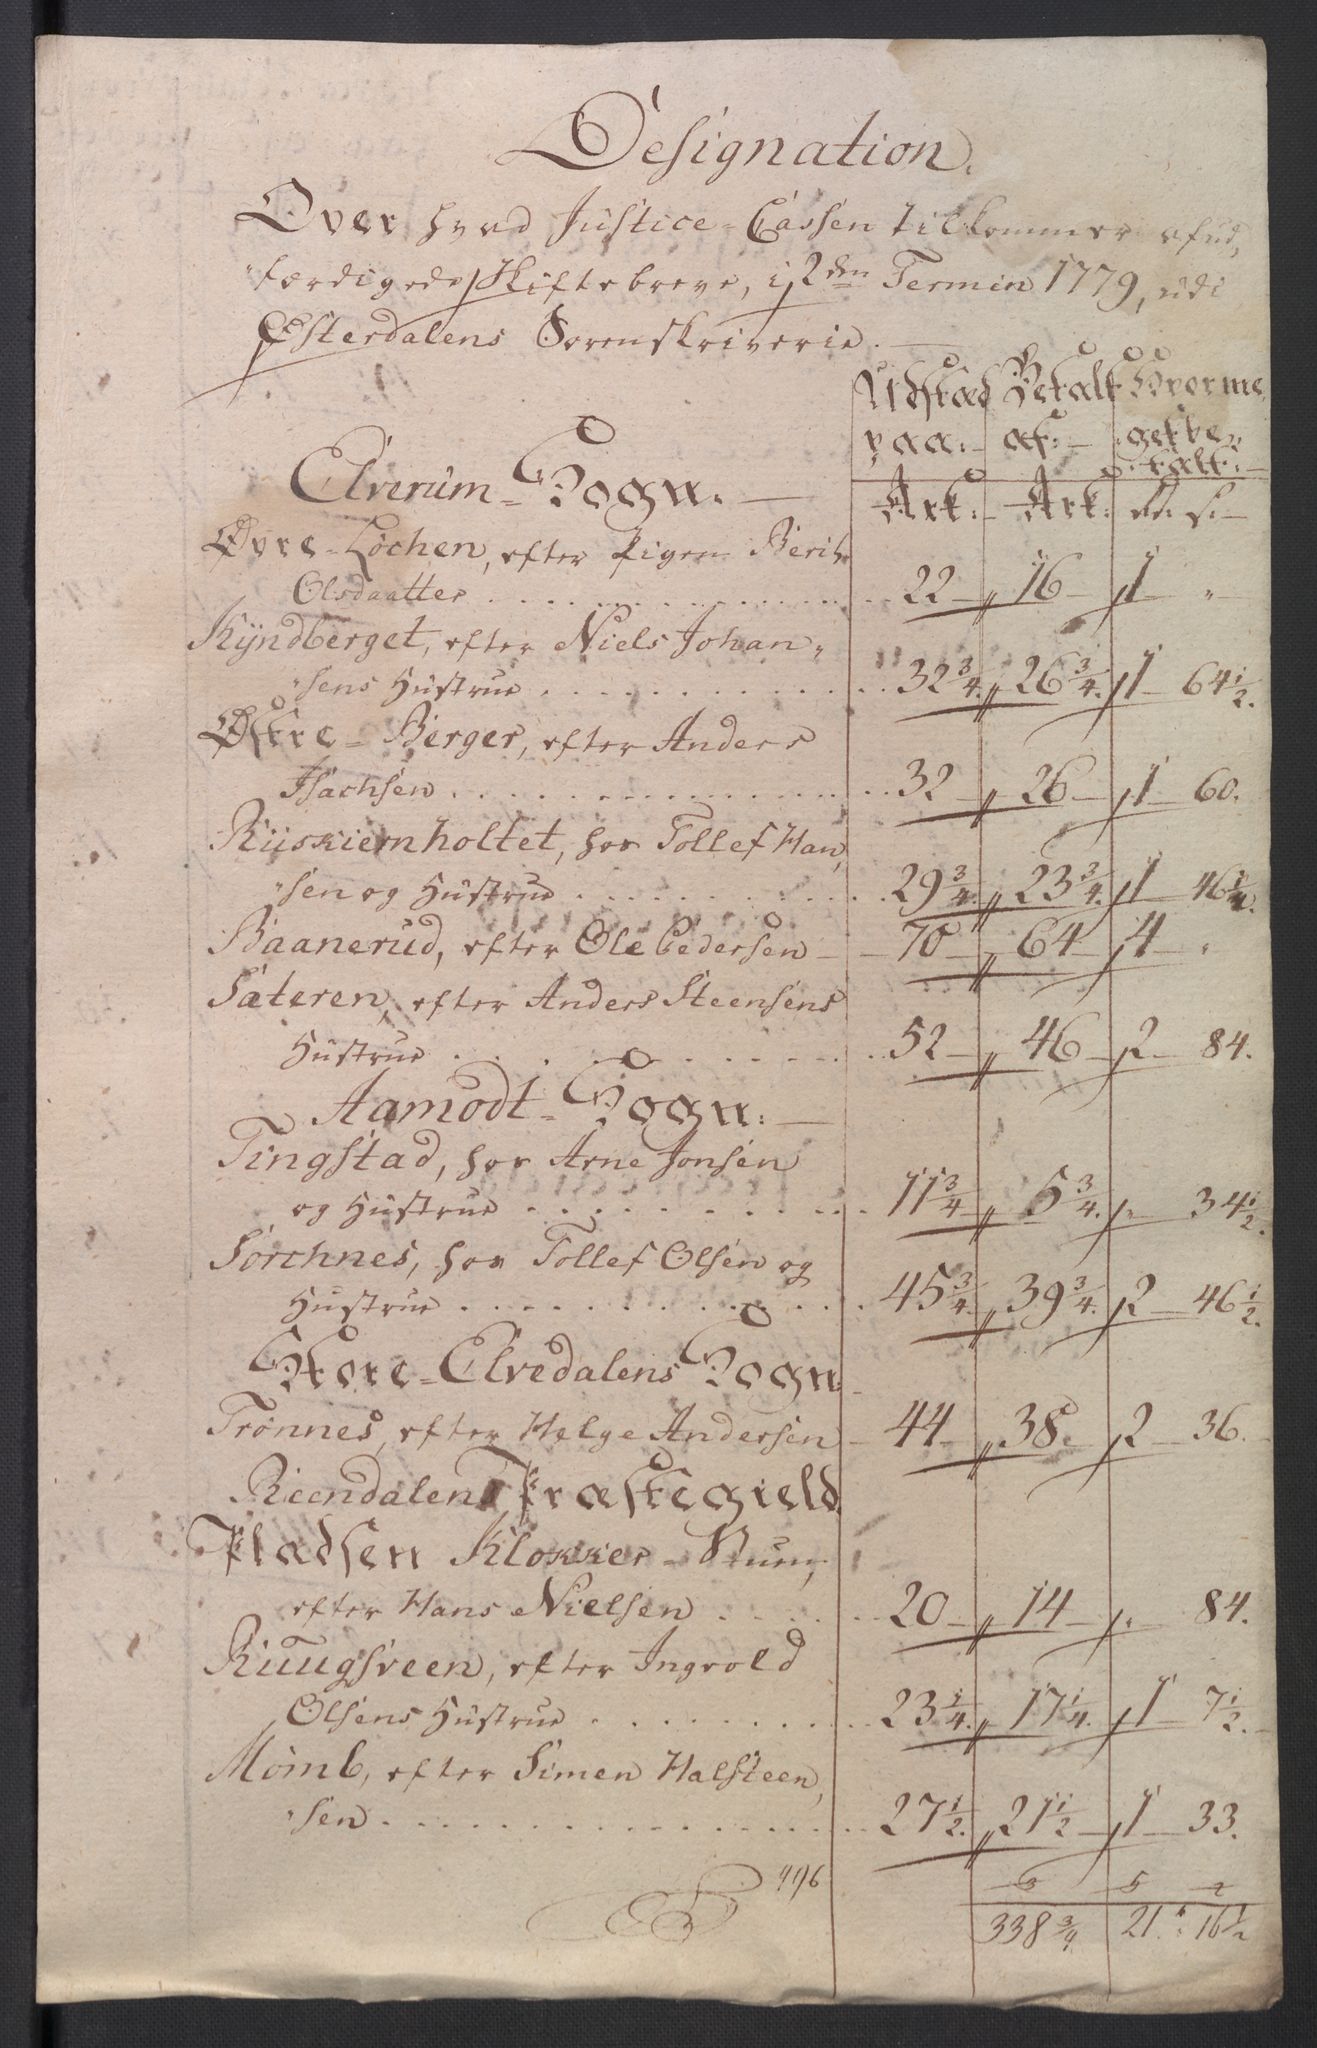 Designation.
Over hvad Justice-Cassen tilkommer af ud,
færdigede Skiftebreve, i 2den Termin 1779, udi
Østerdalens Sorenskriverie.
Udstæd Betalt Hvorme
paa: af: get be
talt:
Elverum-Sogn.
Ark: Ark: rd. s.
Øvre-Lochen, efter Pigen Berit
Olsdaatter 22 16 1 "
Kÿndberget, efter Niels Johan"
"sens Hustrue 32 3/4. 26 3/4. 1 64 1/2.
Østre-Berger, efter Anders
Jsachsen 32 26 1 60.
Riiskiernholtet, hos Tollef Han,
"sen og Hustrue 29 3/4. 23 3/4. 1 46 1/2.
Baanerud, efter Ole Pedersen 70 64 4 "
Sæteren, efter Anders Steensens
Hustrue 52 46 2 84.
Aamodt-Sogn.
Tingstad, hos Arne Jonsen
og Hustrue 11 3/4 5 3/4. " 34 1/2.
Sorchnes, hos Tollef Olsen og
Hustrue 45 3/4. 39 3/4. 2 46 1/2.
Store-Elvedalens Sogn
Trønnes, efter Helge Andersen 44 38. 2 36.
Reendalens Præstegield
Pladsen Klokker-Stuen,
efter Hans Nielsen 20 14 " 84.
Ruugsveen, efter Ingvold
Olsens Hustrue 23 1/4. 17 1/4. 1 7 1/2.
Momb, efter Simen Halsteen,
"sen 27 1/2. 21 1/2 1 33.
496
338 3/4 21. 16 1/2